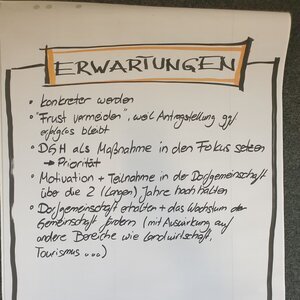 ERWARTUNGEN
• konkreter werden
• "Frust vermeiden", weil Antragstellung ggf
erfolglos bleibt
• DGH als Maßnahme in den Fokus setzen
→ Priorität
• Motivation + Teilnahme in der Dorfgemeinschaft
über die 2 (langen) Jahre hoch halten
• Dorfgemeinschaft erhalten + das Wachstum der
Gemeinschaft fördern (mit Auswirkung auf
andere Bereiche wie Landwirtschaft,
Tourismus ...)